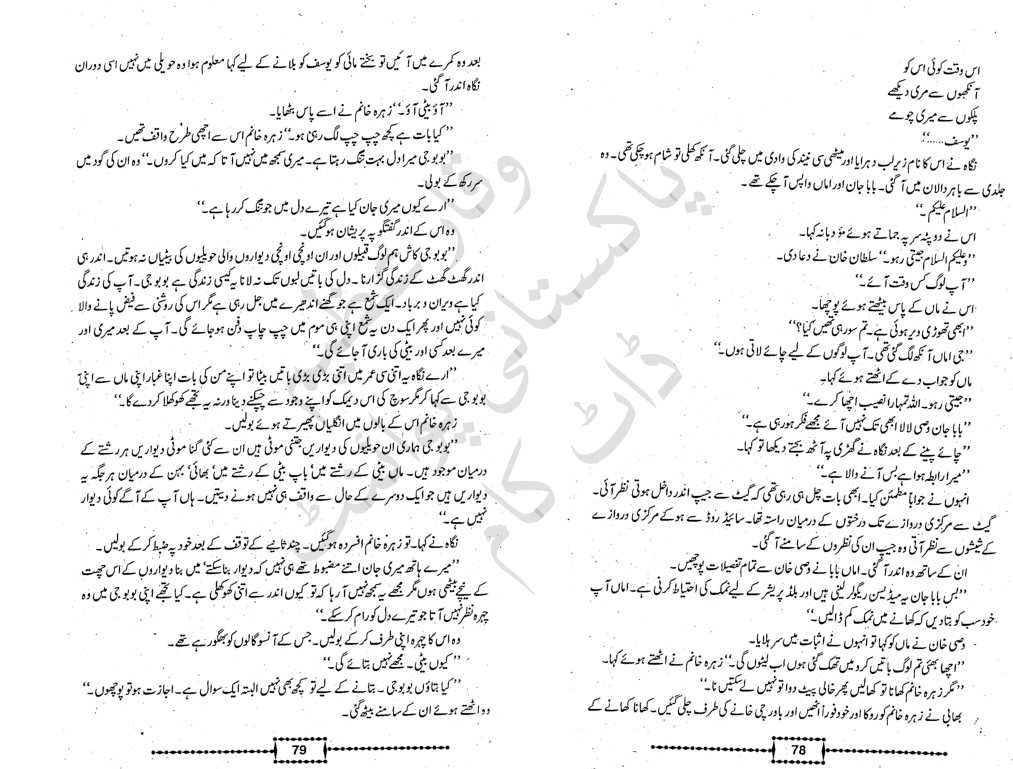 اس وقت کوئی اس کو
آنکھوں سے مری دیکھے
پلکوں سے میری چومے
’’یوسف......‘‘
نگاہ نے اس کا نام زیر لب دہرایا اور میٹھی سی نیند کی وادی میں چلی گئی۔ آنکھ کھلی تو شام ہو چکی تھی۔ وہ
جلدی سے باہر دالان میں آ گئی۔ بابا جان اور اماں واپس آ چکے تھے۔
’’السلام علیکم۔‘‘
اس نے دوپٹہ سر پہ جماتے ہوئے مؤدبانہ کہا۔
’’وعلیکم السلام جیتی رہو۔‘‘ سلطان خان نے دعا دی۔
’’آپ لوگ کس وقت آئے۔‘‘
اس نے ماں کے پاس بیٹھتے ہوئے پوچھا۔
’’ابھی تھوڑی دیر ہوئی ہے۔ تم سو رہی تھیں کیا؟‘‘
’’جی اماں آنکھ لگ گئی تھی۔ آپ لوگوں کے لیے چائے لاتی ہوں۔‘‘
ماں کو جواب دے کے اٹھتے ہوئے کہا۔
’’جیتی رہو۔ اللہ تمہارا نصیب اچھا کرے۔‘‘
’’بابا جان وصی لالا ابھی تک نہیں آئے مجھے فکر ہو رہی ہے۔‘‘
’’چائے پینے کے بعد نگاہ نے گھڑی پہ آٹھ بجتے دیکھا تو کہا۔
’’میرا رابطہ ہوا ہے بس آنے والا ہے۔‘‘
انہوں نے جواباً مطمئن کیا۔ ابھی بات چل ہی رہی تھی کہ گیٹ سے جیپ اندر داخل ہوتی نظر آئی۔
گیٹ سے مرکزی دروازے تک درختوں کے درمیان راستہ تھا۔ سائیڈ روڈ سے ہو کے مرکزی دروازے
کے شیشوں سے نظر آتی وہ جیپ ان کی نظروں کے سامنے آ گئی۔
ان کے ساتھ وہ اندر آ گئی۔ اماں بابا نے وصی خان سے تمام تفصیلات پوچھیں۔
’’بس بابا جان یہ میڈیسن ریگولر لینی ہیں اور بلڈ پریشر کے لیے نمک کی احتیاط کرنی ہے۔ اماں آپ
خود سب کو بتا دیں کہ کھانے میں نمک کم ڈالیں۔‘‘
وصی خان نے ماں کو کہا تو انہوں نے اثبات میں سر ہلایا۔
’’اچھا بھئی تم لوگ باتیں کرو میں تھک گئی ہوں اب لیٹوں گی۔‘‘ زہرہ خانم نے اٹھتے ہوئے کہا۔
’’مگر زہرہ خانم کھانا تو کھا لیں پھر خالی پیٹ دوا تو نہیں لے سکتیں نا۔‘‘
بھابی نے زہرہ خانم کو روکا اور خود فوراً اٹھیں اور باورچی خانے کی طرف چلی گئیں۔ کھانا کھانے کے
78
بعد وہ کمرے میں آئیں تو بختے مائی کو یوسف کو بلانے کے لیے کہا معلوم ہوا وہ حویلی میں نہیں اسی دوران
نگاہ اندر آ گئی۔
’’آؤ بیٹی آؤ۔‘‘ زہرہ خانم نے اسے پاس بٹھایا۔
’’کیا بات ہے کچھ چپ چپ لگ رہی ہو۔‘‘ زہرہ خانم اس سے اچھی طرح واقف تھیں۔
’’بوبو جی میرا دل بہت تنگ رہتا ہے۔ میری سمجھ میں نہیں آتا کہ میں کیا کروں۔‘‘ وہ ان کی گود میں
سر رکھ کے بولی۔
’’ارے کیوں میری جان کیا ہے تیرے دل میں جو تنگ کر رہا ہے۔‘‘
وہ اس کے اندر گفتگو پہ پریشان ہو گئیں۔
’’بوبو جی کاش ہم لوگ قبیلوں اور ان اونچی اونچی دیواروں والی حویلیوں کی بیٹیاں نہ ہوتیں۔ اندر ہی
اندر گھٹ گھٹ کے زندگی گزارنا۔ دل کی باتیں لبوں تک نہ لانا یہ کیسی زندگی ہے بوبو جی۔ آپ کی زندگی
کیا ہے ویران و برباد۔ ایک شمع ہے جو گھنے اندھیرے میں جل رہی ہے مگر اس کی روشنی سے فیض پانے والا
کوئی نہیں اور پھر ایک دن یہ شمع اپنی ہی موم میں چپ چاپ دفن ہو جائے گی۔ آپ کے بعد میری اور
میرے بعد کسی اور بیٹی کی باری آ جائے گی۔‘‘
’’ارے نگاہ یہ اتنی سی عمر میں اتنی بڑی بڑی باتیں بیٹا تو اپنے من کی بات اپنا غبار اپنی ماں سے اپنی
بوبو جی سے کہا کر مگر سوچ کی اس دیمک کو اپنے وجود سے چپکنے نہ دینا ورنہ یہ تجھے کھوکھلا کر دے گا۔‘‘
زہرہ خانم اس کے بالوں میں انگلیاں پھیرتے ہوئے بولیں۔
’’بوبو جی ہماری ان حویلیوں کی دیواریں جتنی موٹی ہیں ان سے کئی گنا موٹی دیواریں ہر رشتے کے
درمیان موجود ہیں۔ ماں بیٹی کے رشتے میں‘ باپ بیٹی کے رشتے میں‘ بھائی‘ بہن کے درمیان ہر جگہ یہ
دیواریں ہیں جو ایک دوسرے کے حال سے واقف ہی نہیں ہونے دیتیں۔ ہاں آپ کے آگے کوئی دیوار
نہیں ہے۔‘‘
نگاہ نے کہا۔ تو زہرہ خانم افسردہ ہو گئیں۔ چند ثانیے کے توقف کے بعد خود پہ ضبط کر کے بولیں۔
’’میرے ہاتھ میری جان اتنے مضبوط تھے ہی نہیں کہ دیوار بنا سکتے‘ میں بنا دیواروں کے اس چھت
کے نیچے بیٹھی ہوں مگر مجھے یہ سمجھ نہیں آ رہا کہ تو کیوں اندر سے اتنی کھوکھلی ہے۔ کیا تجھے اپنی بوبو جی میں وہ
چہرہ نظر نہیں آتا جو تیرے دل کو رام کر سکے۔‘‘
وہ اس کا چہرہ اپنی طرف کر کے بولیں۔ جس کے آنسو گالوں کو بھگو رہے تھے۔
’’کیوں بیٹی۔ مجھے نہیں بتائے گی۔‘‘
’’کیا بتاؤں بوبو جی۔ بتانے کے لیے تو کچھ بھی نہیں البتہ ایک سوال ہے۔ اجازت ہو تو پوچھوں۔‘‘
وہ اٹھتے ہوئے ان کے سامنے بیٹھ گئی۔
79
پاکستانی
ڈاٹ کام